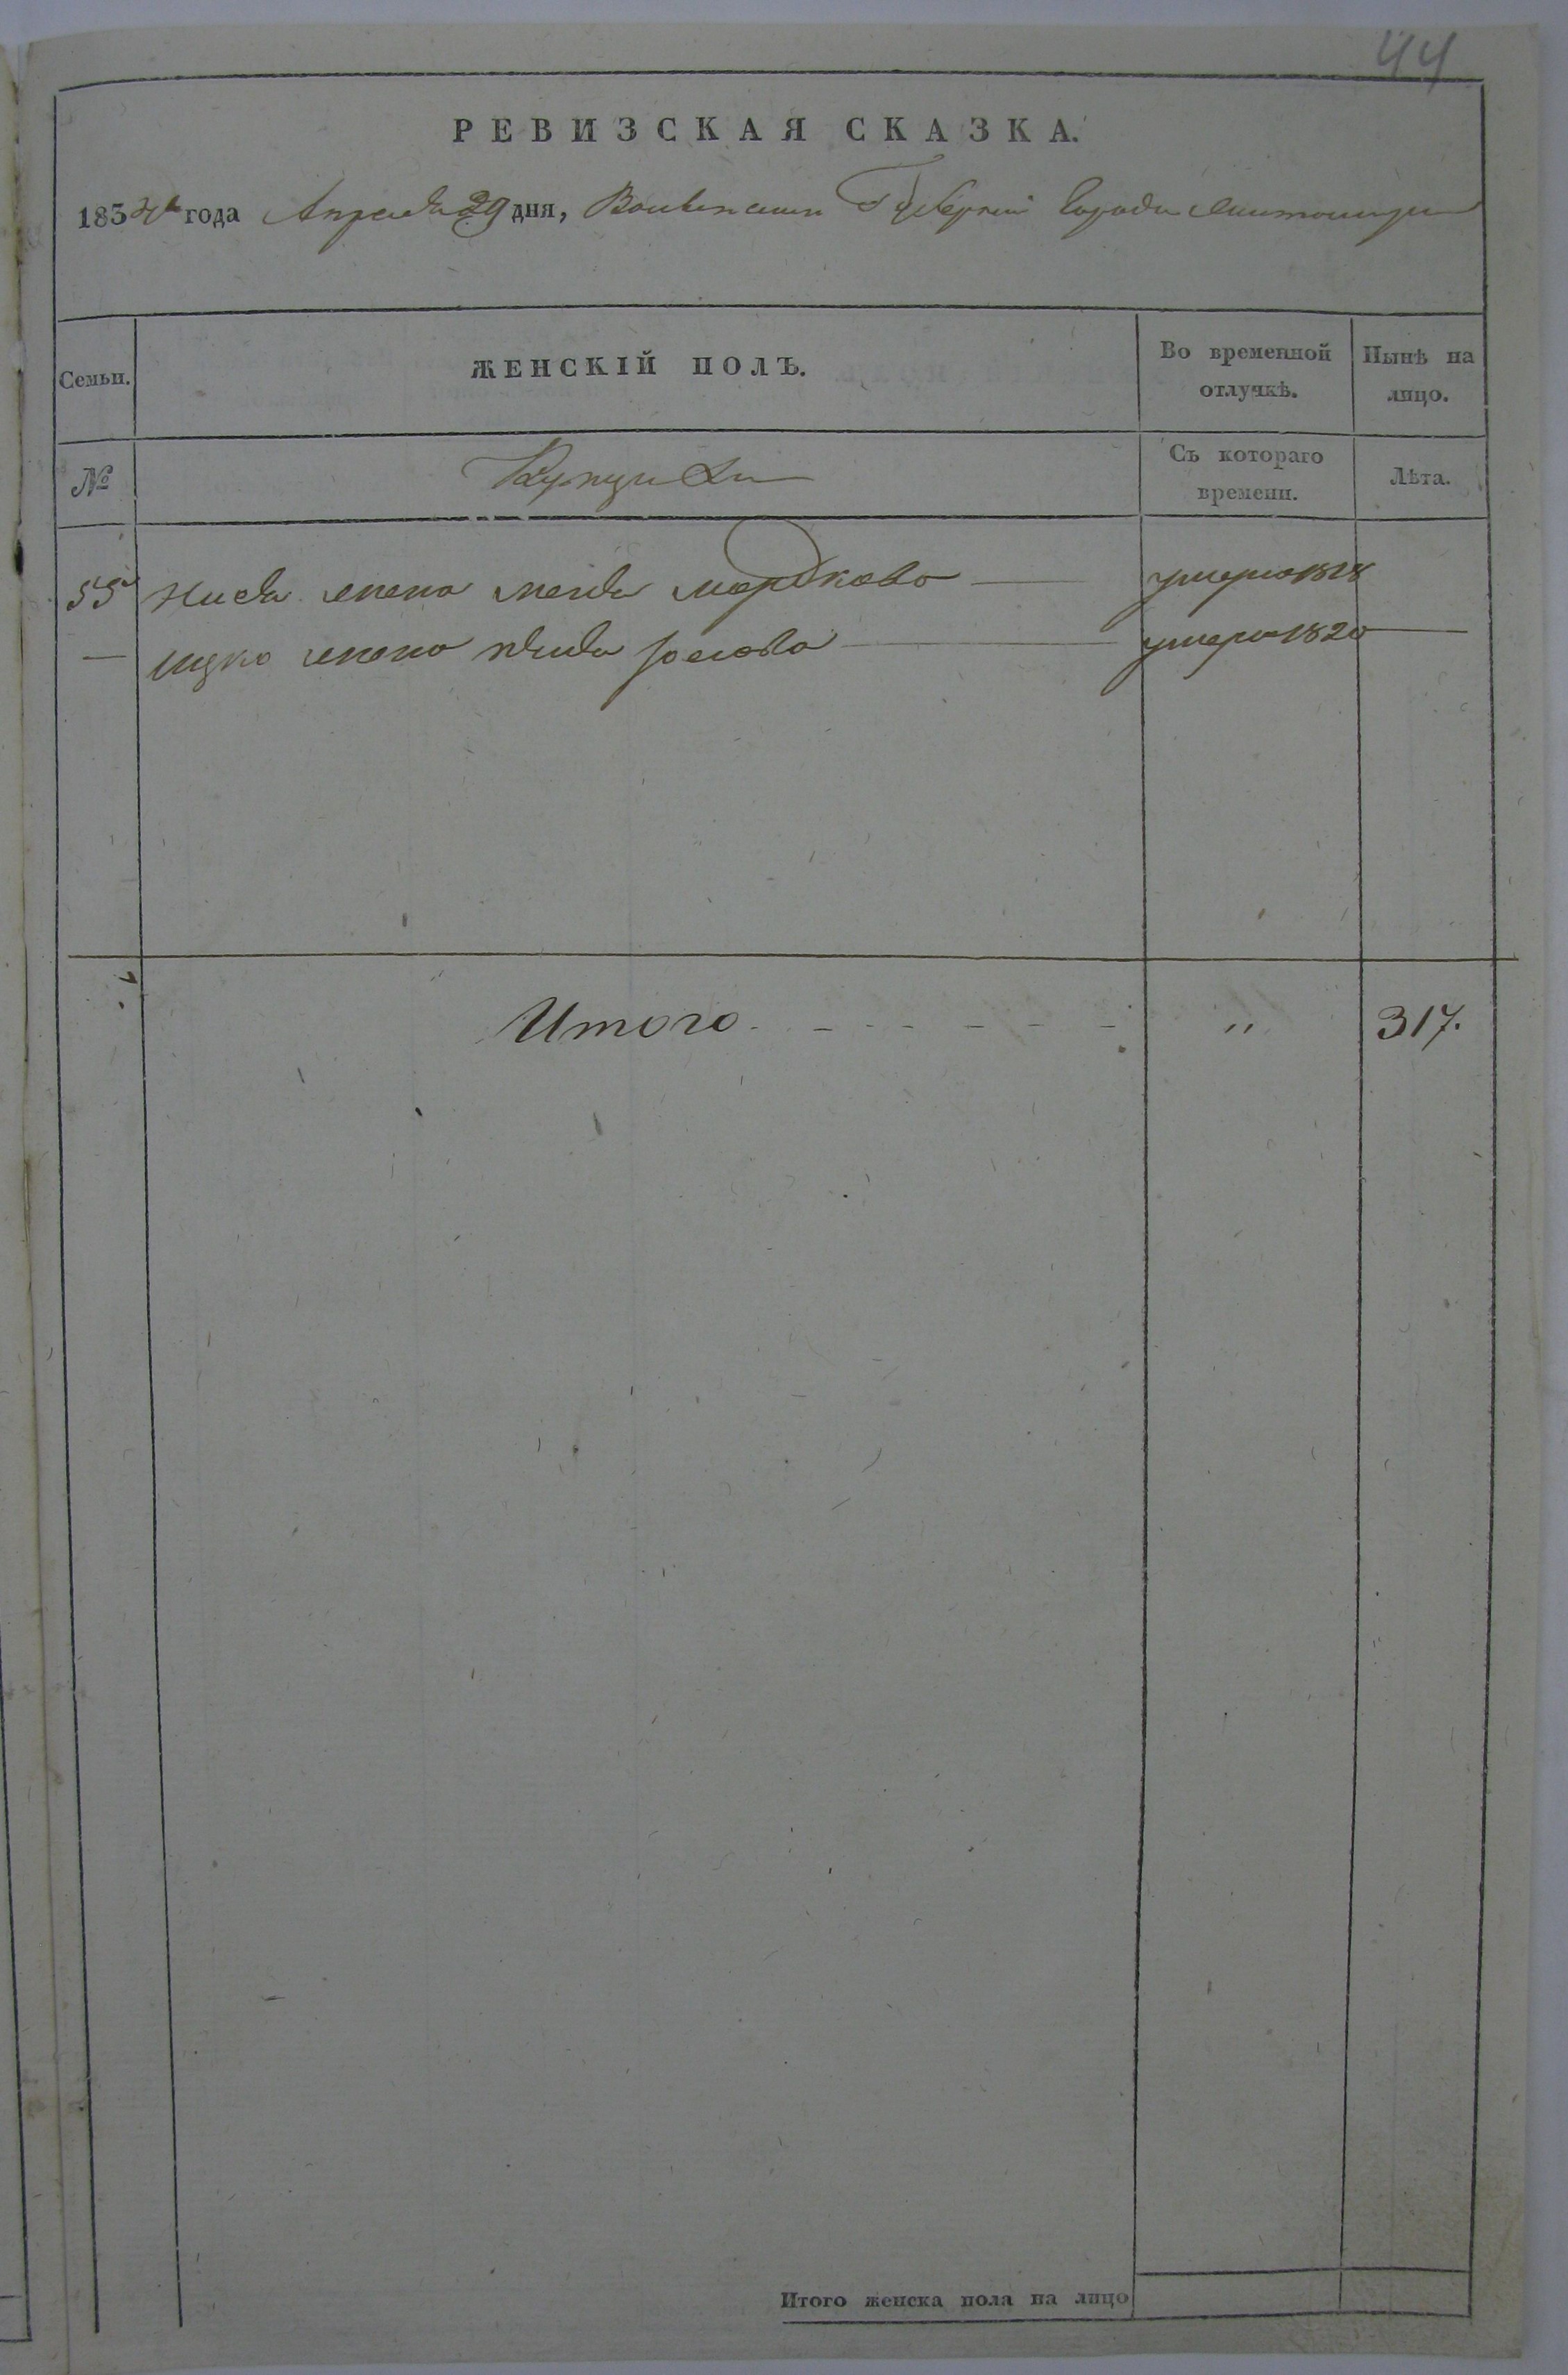 44
РЕВИЗСКАЯ СКАЗКА.
1834 года Апреля 29 дня, Волынской Губернии Города Житомира
Семьи.
ЖЕНСКІЙ ПОЛЪ.
Во временной отлучкѣ.
Нынѣ на лицо.
№
Съ котораго времени.
Лѣта.
55 жена мордкова умерла 1828
— ицка жена умерла 1820
Итого - - - - - - - „ 317.
Итого женска пола на лицо